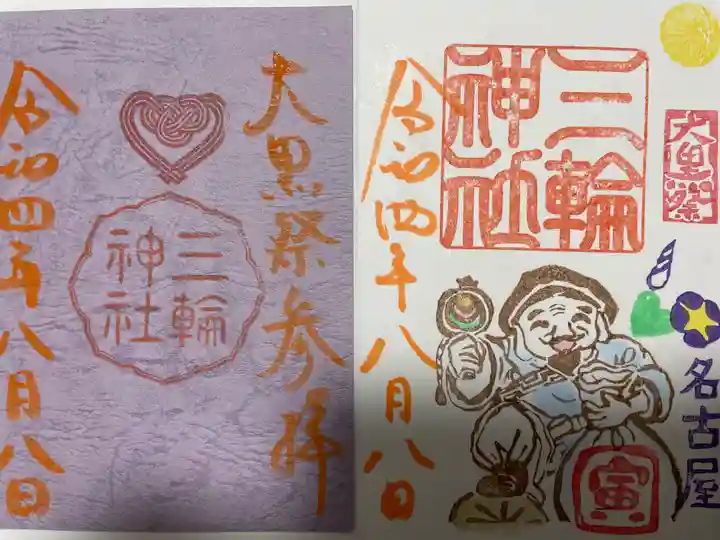 大黒祭参拝
三輪
神社
令和四年八月八日
大黒祭
名古屋
三輪
神社
寅
令和四年八月八日